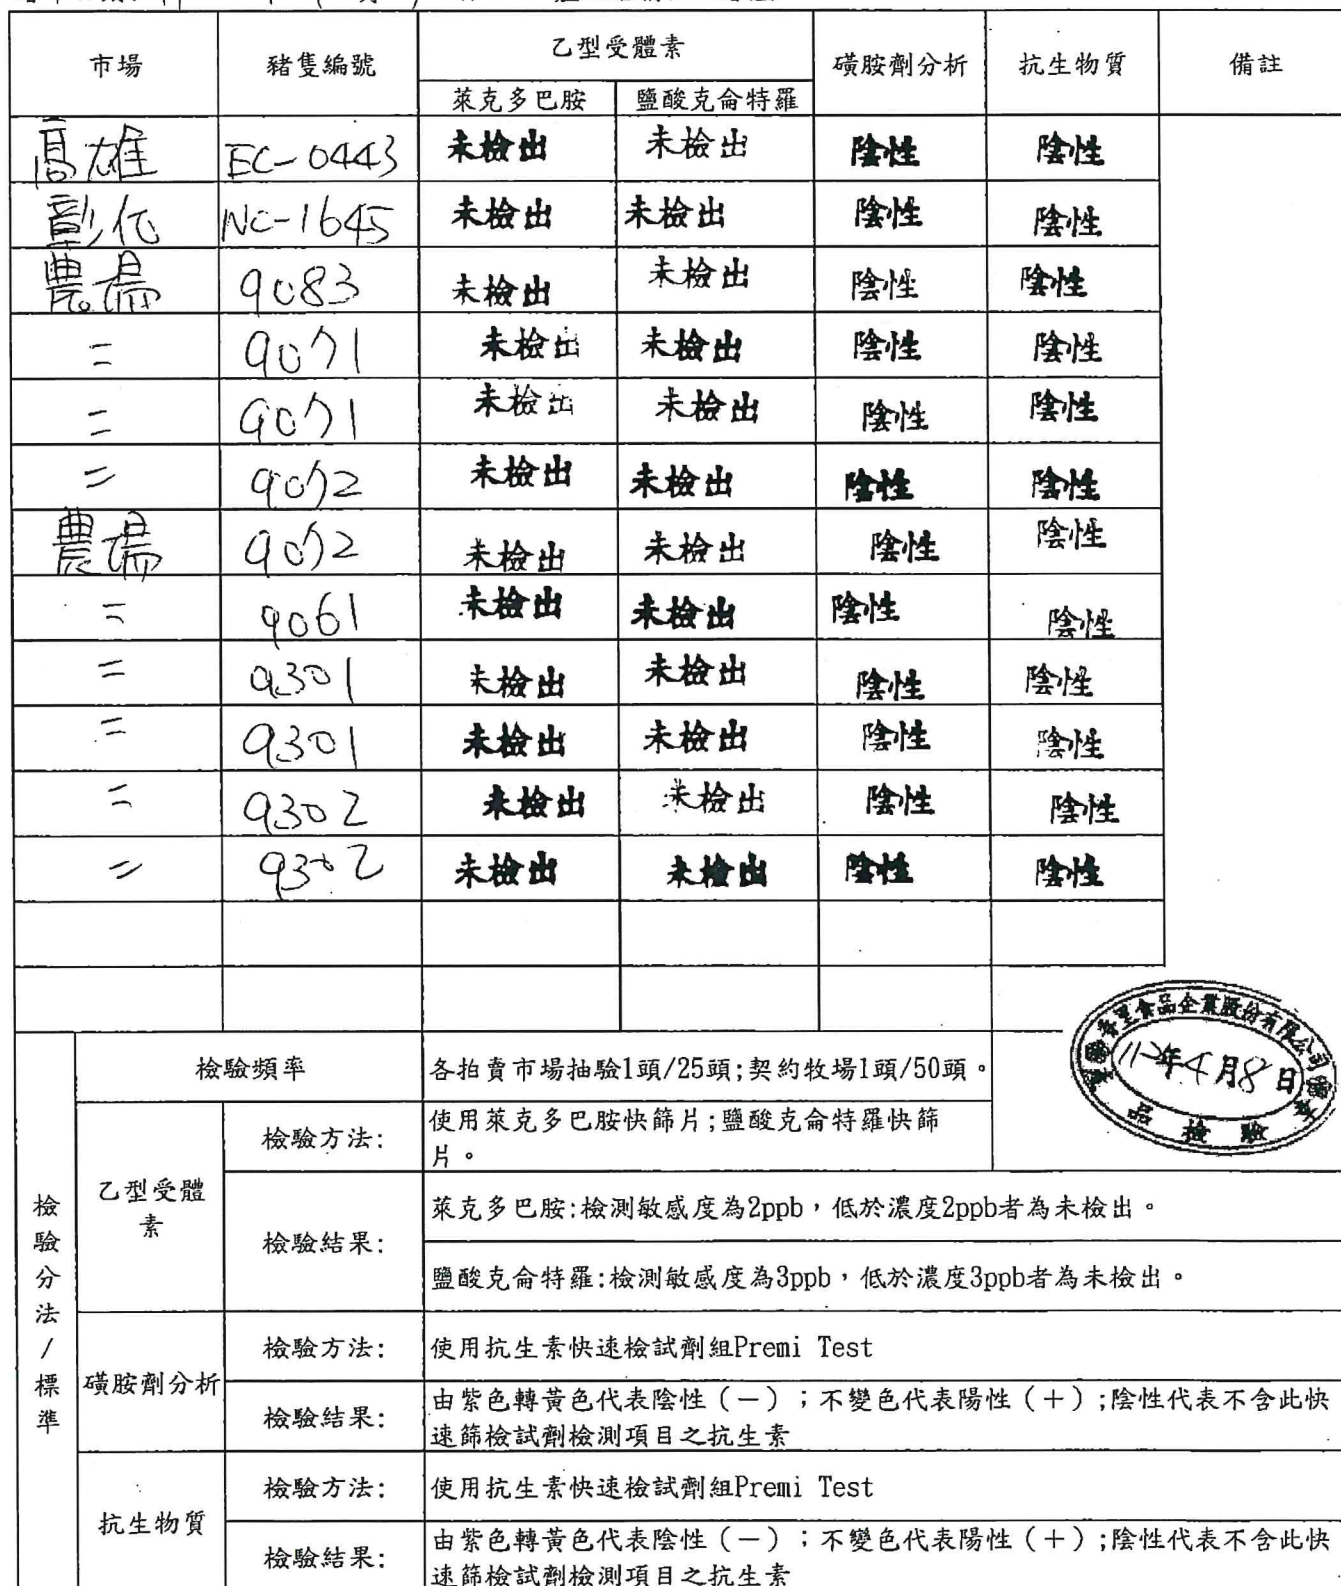 市場 豬隻編號 乙型受體素 磺胺劑分析 抗生物質 備註
萊克多巴胺 鹽酸克侖特羅
高雄 EC-0443 未檢出 未檢出 陰性 陰性
彰化 NC-1645 未檢出 未檢出 陰性 陰性
農場 9083 未檢出 未檢出 陰性 陰性
= 9071 未檢出 未檢出 陰性 陰性
= 9071 未檢出 未檢出 陰性 陰性
= 9072 未檢出 未檢出 陰性 陰性
農場 9072 未檢出 未檢出 陰性 陰性
= 9061 未檢出 未檢出 陰性 陰性
= 9301 未檢出 未檢出 陰性 陰性
= 9301 未檢出 未檢出 陰性 陰性
= 9302 未檢出 未檢出 陰性 陰性
= 9302 未檢出 未檢出 陰性 陰性
食品企業股份有限公司
112年4月8日
品檢驗
檢驗分法/標準
檢驗頻率 各拍賣市場抽驗1頭/25頭;契約牧場1頭/50頭。
乙型受體素
檢驗方法: 使用萊克多巴胺快篩片;鹽酸克侖特羅快篩
片。
檢驗結果: 萊克多巴胺:檢測敏感度為2ppb,低於濃度2ppb者為未檢出。
鹽酸克侖特羅:檢測敏感度為3ppb,低於濃度3ppb者為未檢出。
磺胺劑分析
檢驗方法: 使用抗生素快速檢試劑組Premi Test
檢驗結果: 由紫色轉黃色代表陰性(-);不變色代表陽性(+);陰性代表不含此快
速篩檢試劑檢測項目之抗生素
抗生物質
檢驗方法: 使用抗生素快速檢試劑組Premi Test
檢驗結果: 由紫色轉黃色代表陰性(-);不變色代表陽性(+);陰性代表不含此快
速篩檢試劑檢測項目之抗生素